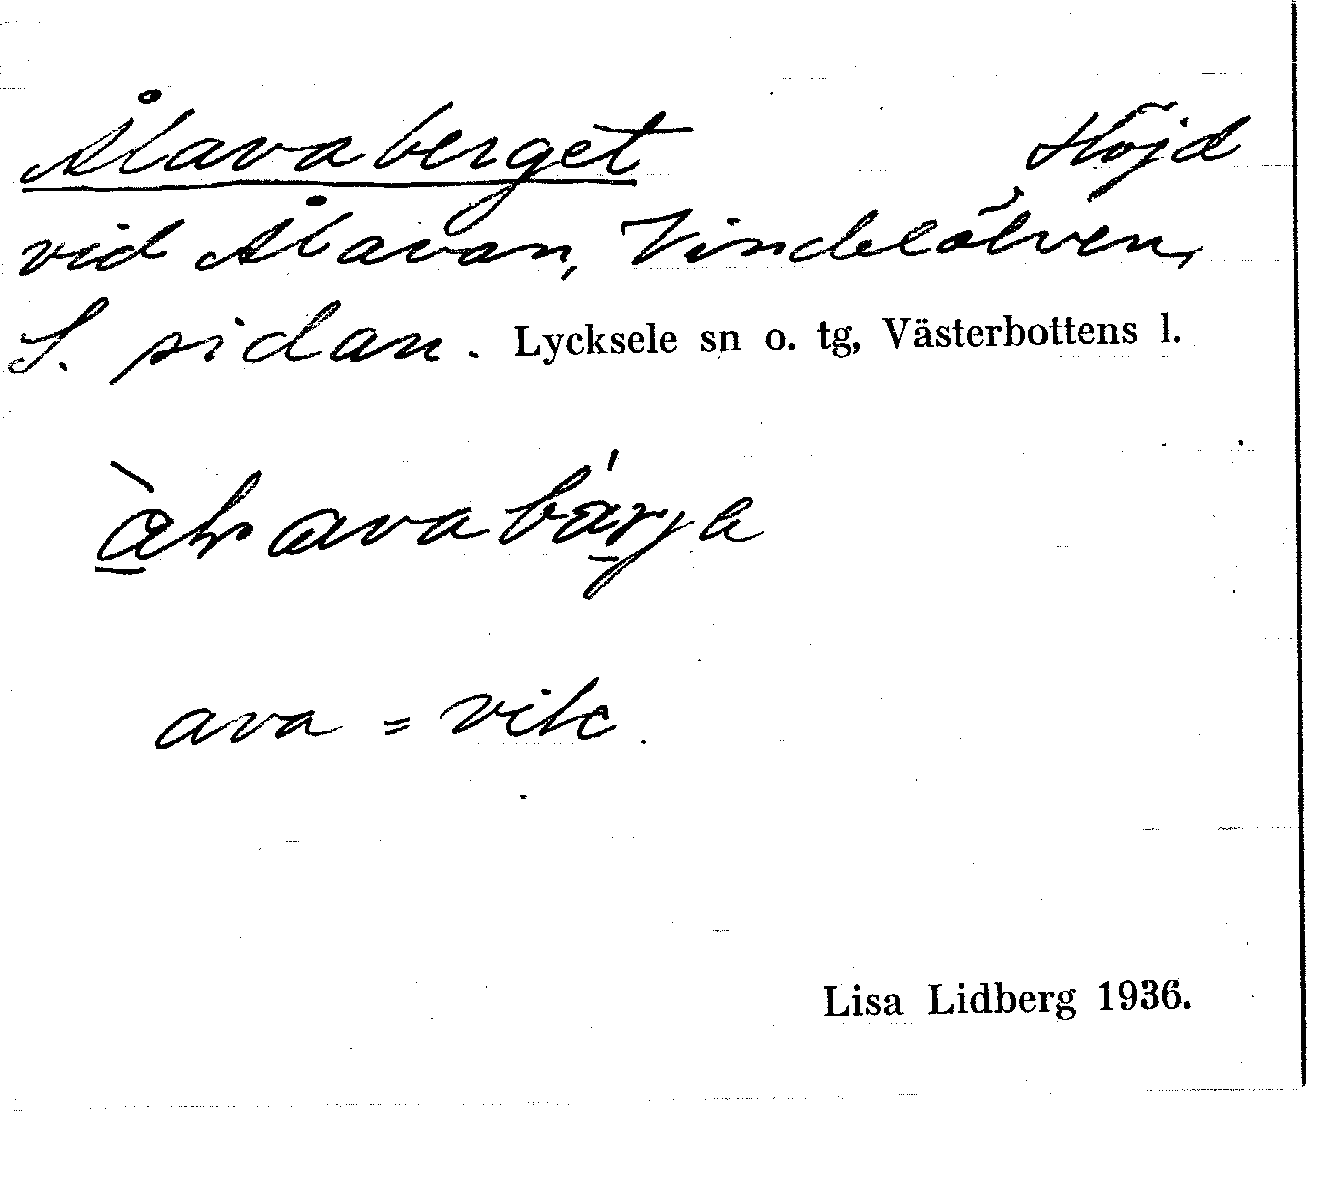 Ålavaberget Höjd
vid Ålavan, Vindelälven,
S. sidan. Lycksele sn o. tg, Västerbottens l.
ava = vik.
Lisa Lidberg 1936.